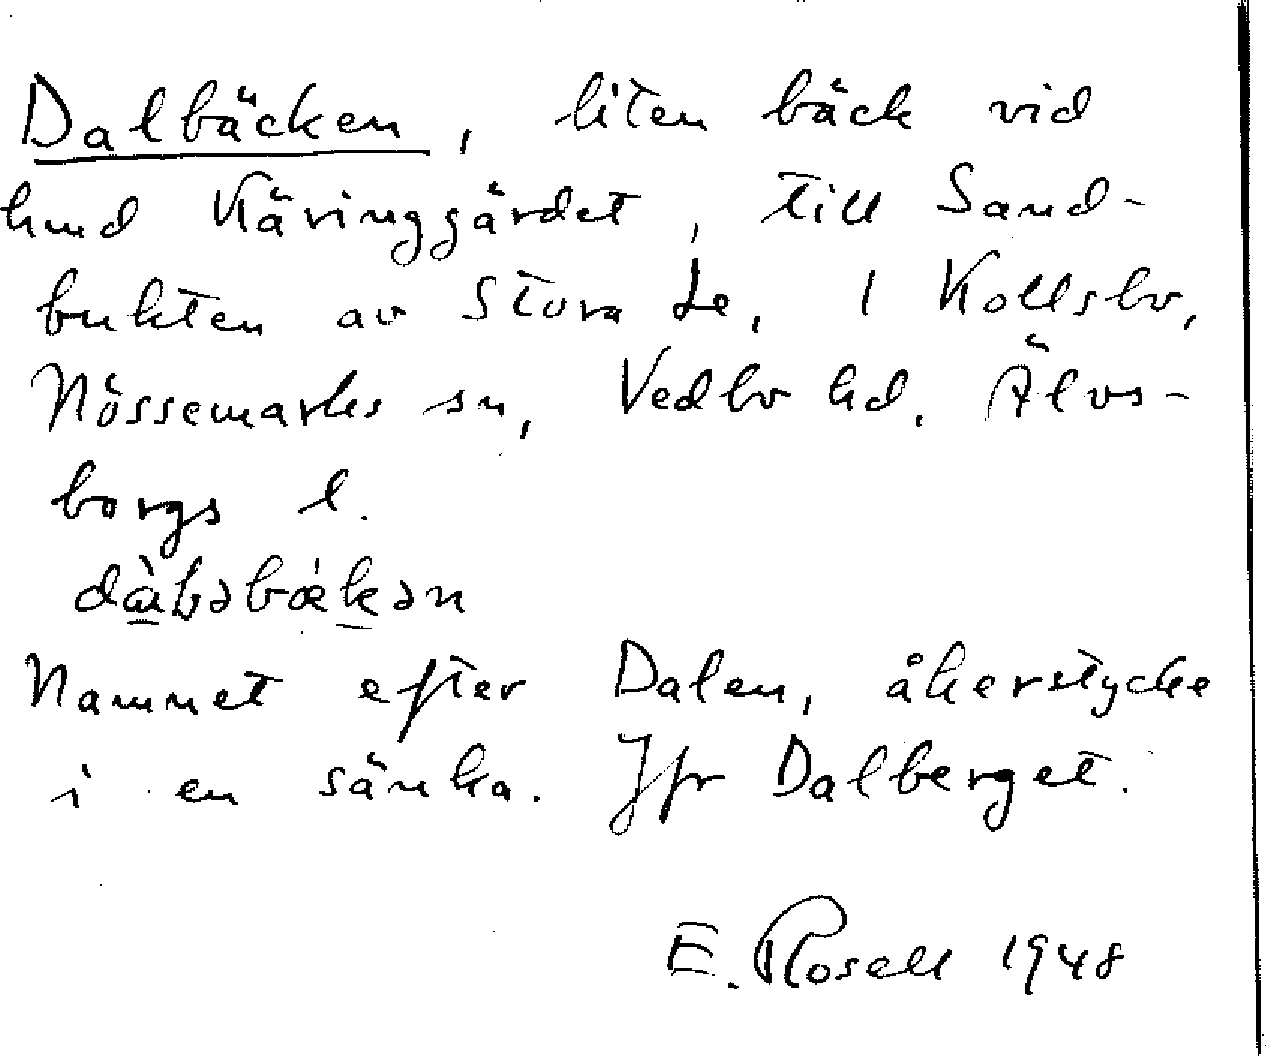 Dalbäcken, liten bäck vid
hmd Käringgärdet, till Sand-
bukten av Stora Le, i Kollsbo,
Nössemarks sn, Vedbo hd, Älvs-
borgs l.
Namnet efter Dalen, åkerstycke
i en sänka. Jfr Dalberget.
E. Rosell 1948